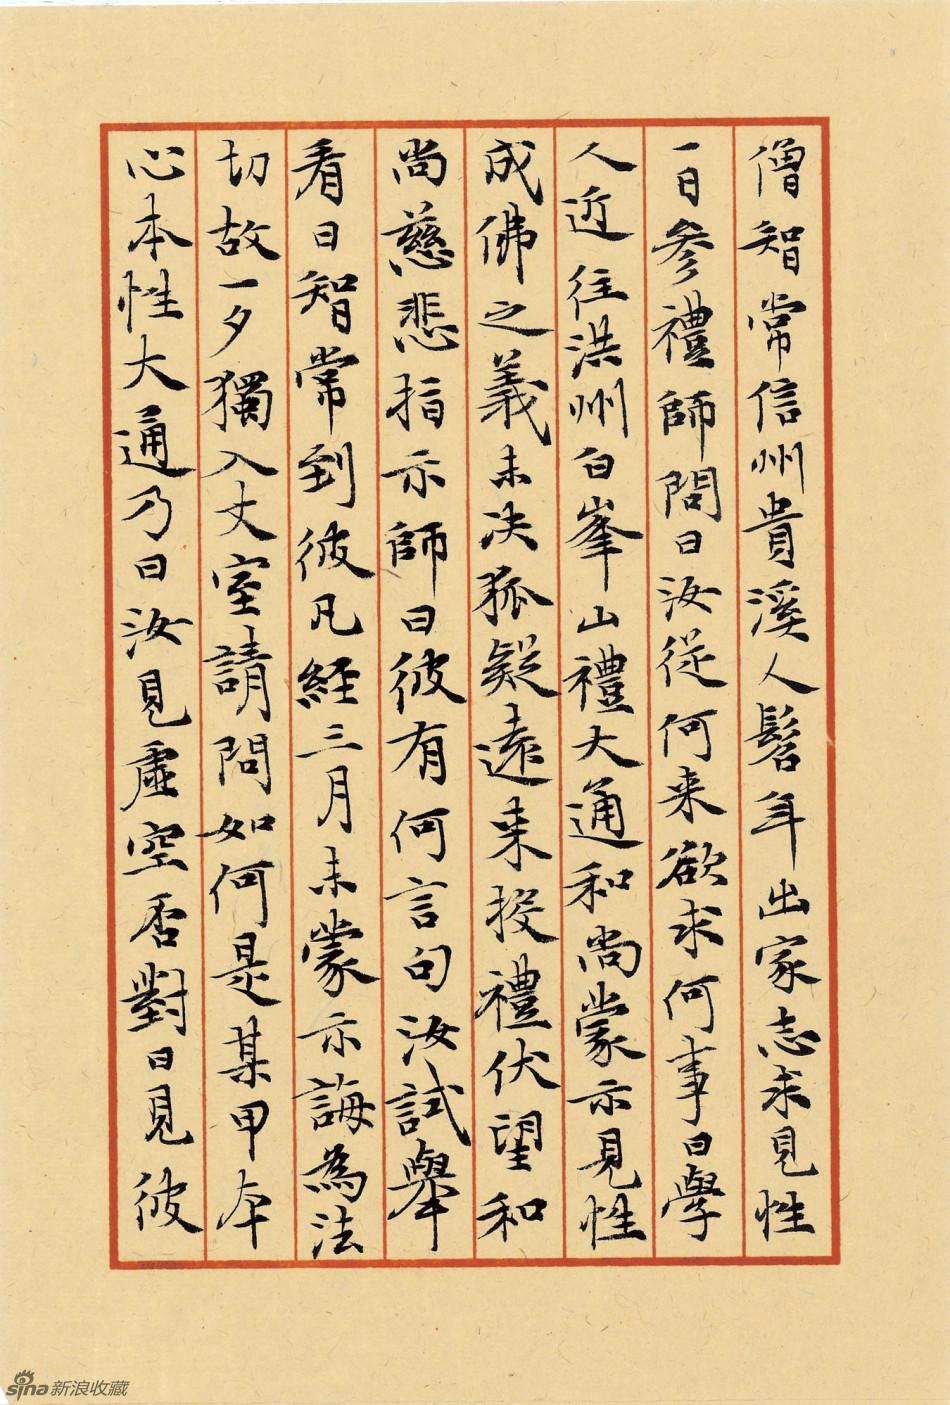 僧智常信州貴溪人髫年出家志求見性
一日參禮師問曰汝從何来欲求何事曰學
人近往洪州白峯山禮大通和尚蒙示見性
成佛之義未决狐疑遠来投禮伏望和
尚慈悲指示師曰彼有何言句汝試舉
看曰智常到彼凡經三月未蒙示誨為法
切故一夕獨入丈室請問如何是某甲本
心本性大通乃曰汝見虛空否對曰見彼
sina新浪收藏